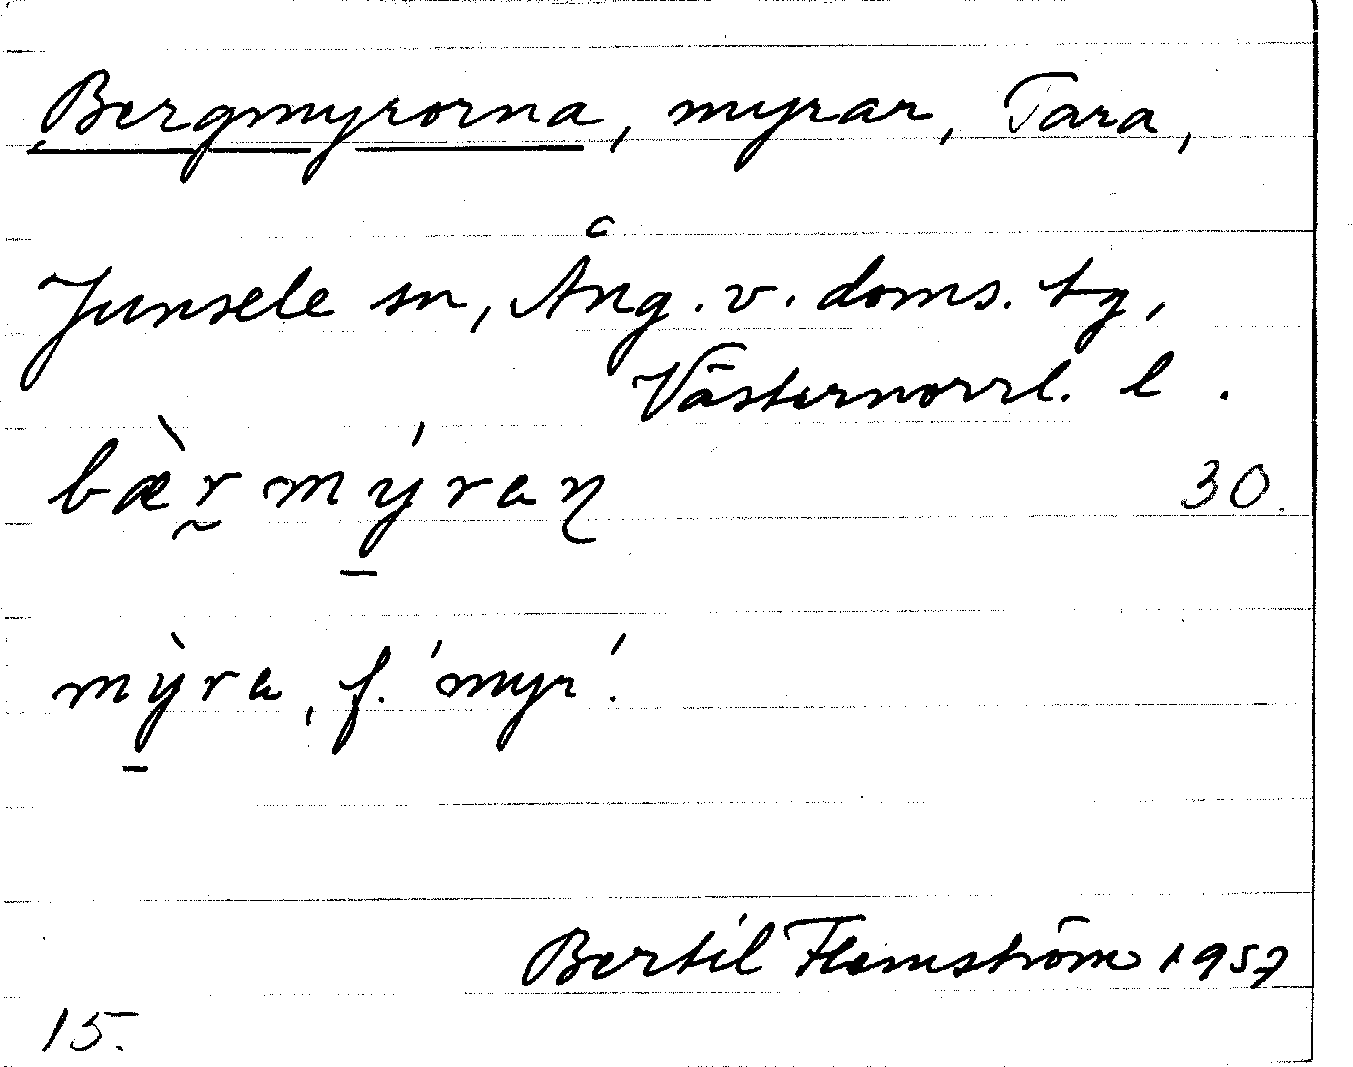 Bergmyrorna, myrar, Tara,
Junsele sn, Ång. v. doms. tg,
Västernorrl. l.
bæ̀r̰mý̱raɳ 30.
mỳ̱ra, f. 'myr'.
Bertil Flemström 1957
15.